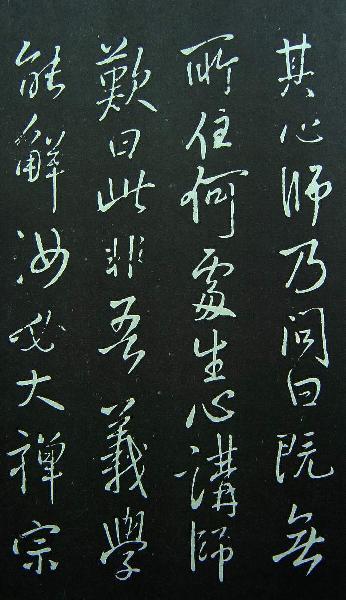 其心師乃問曰既無
所住何處生心講師
歎曰此非吾義學
能解汝必大禪宗